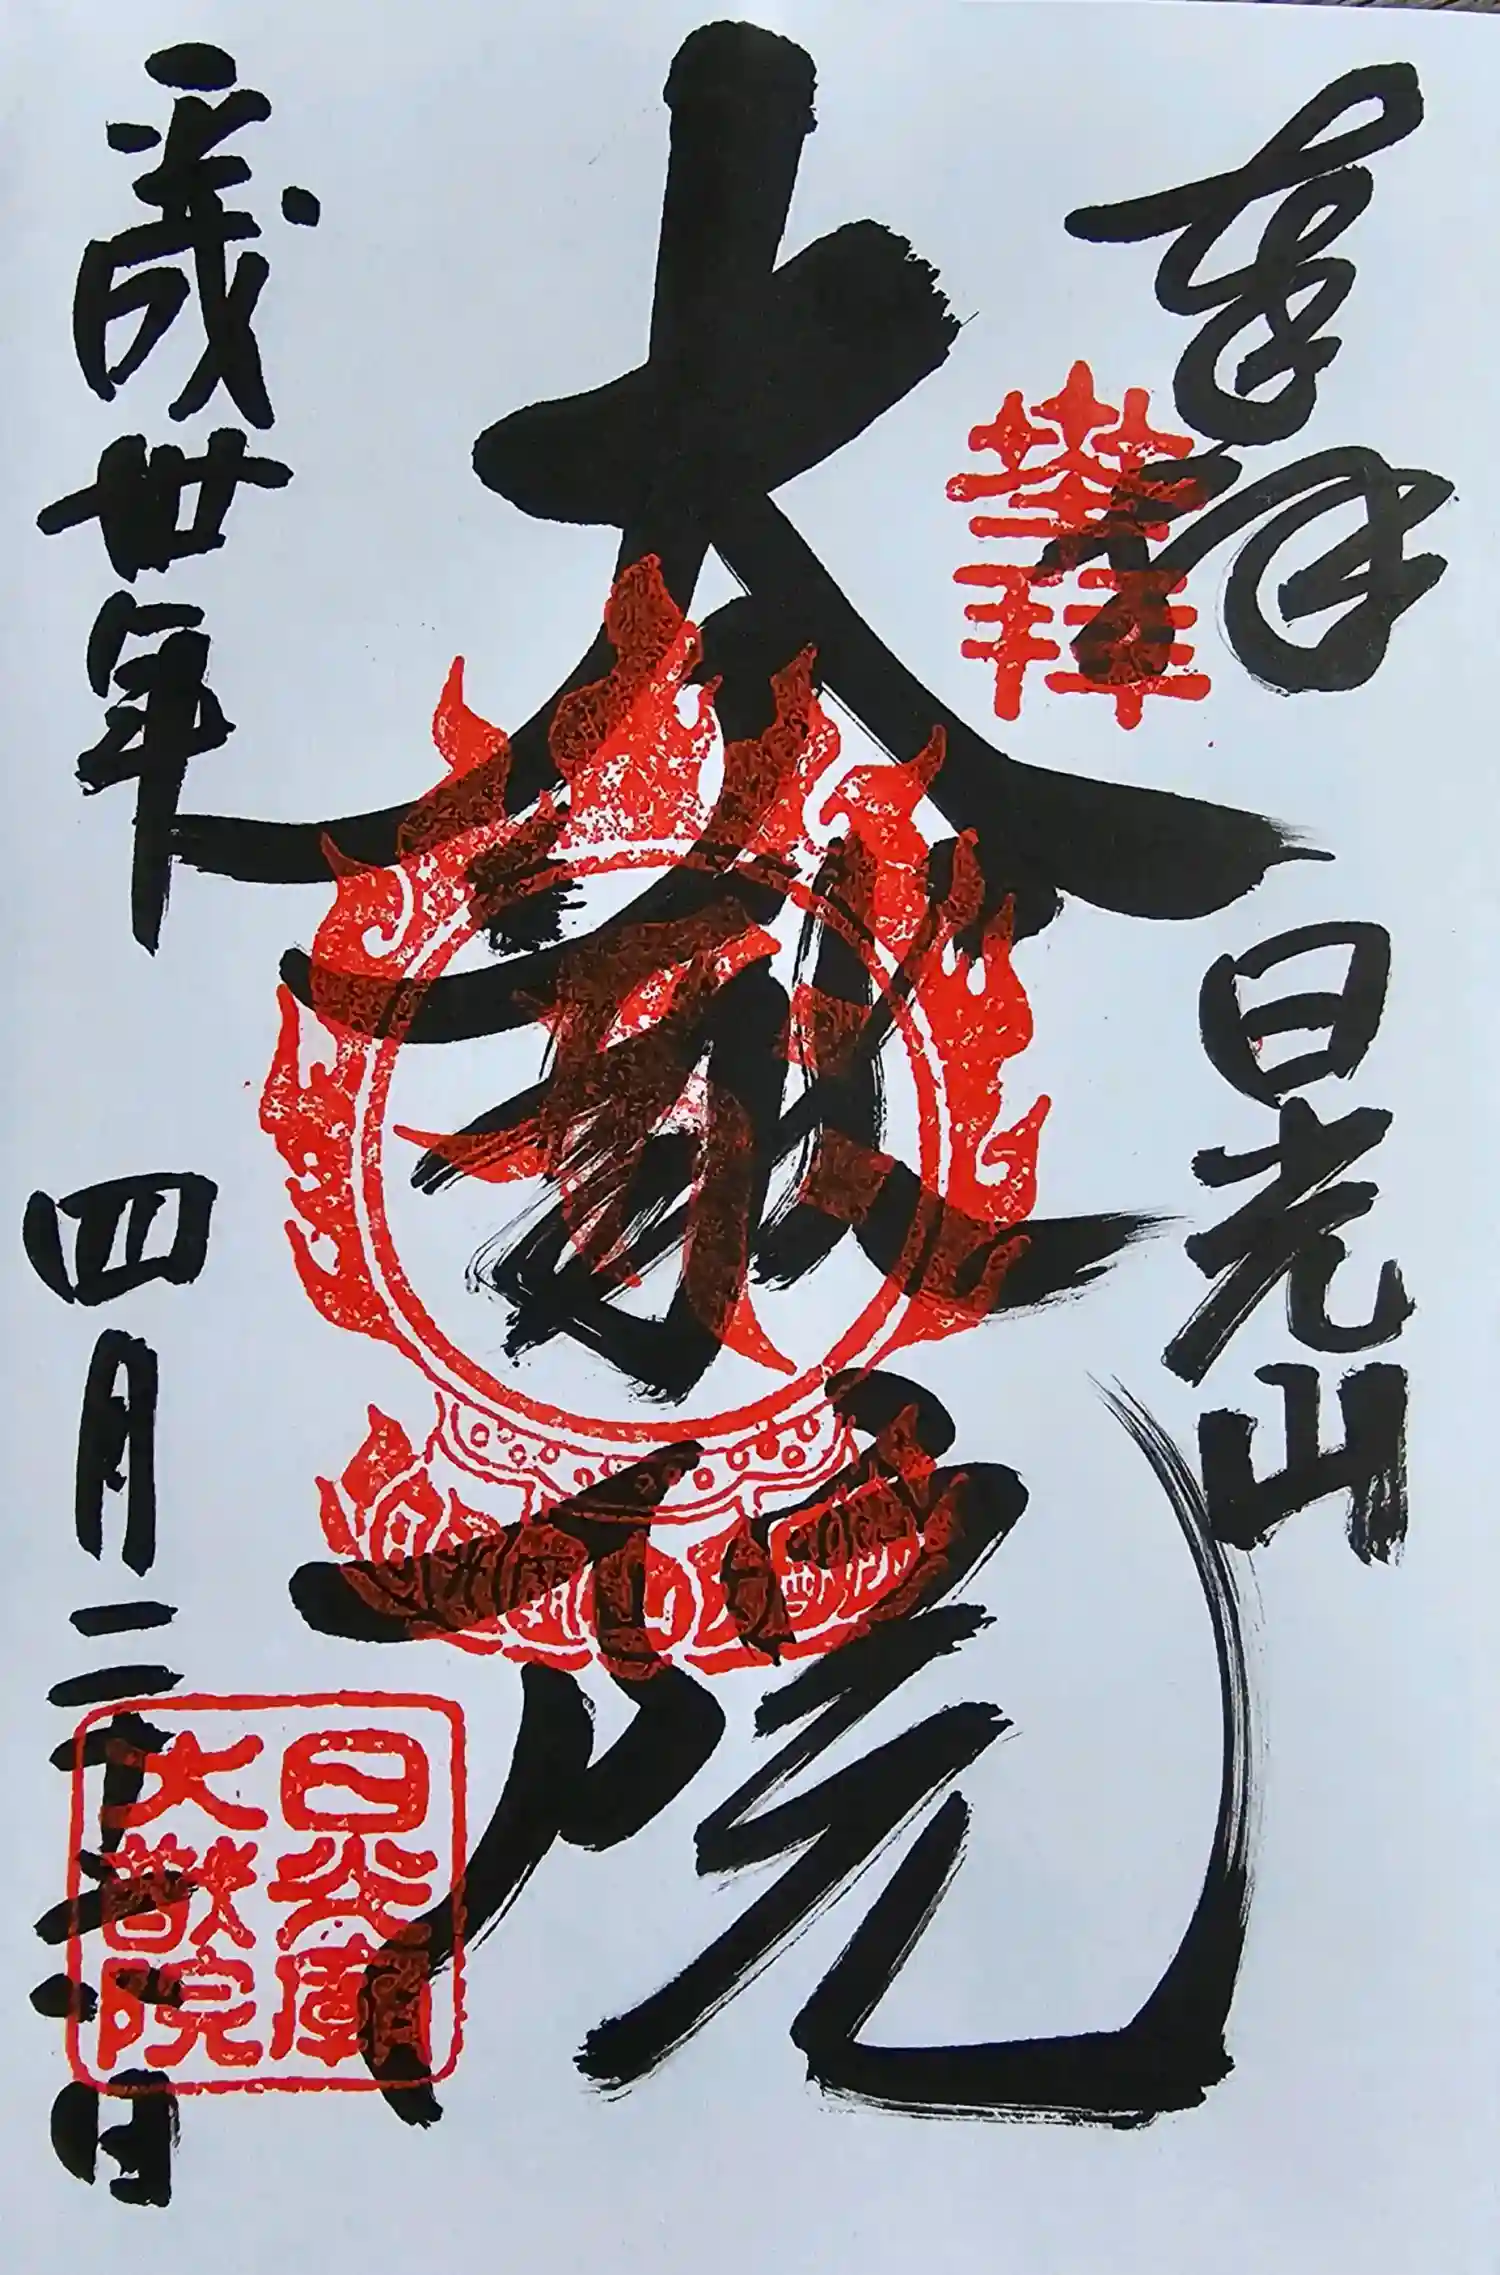 奉拝
日光山
大猷院
平成卅年
四月二十六日
日光廟
大猷院